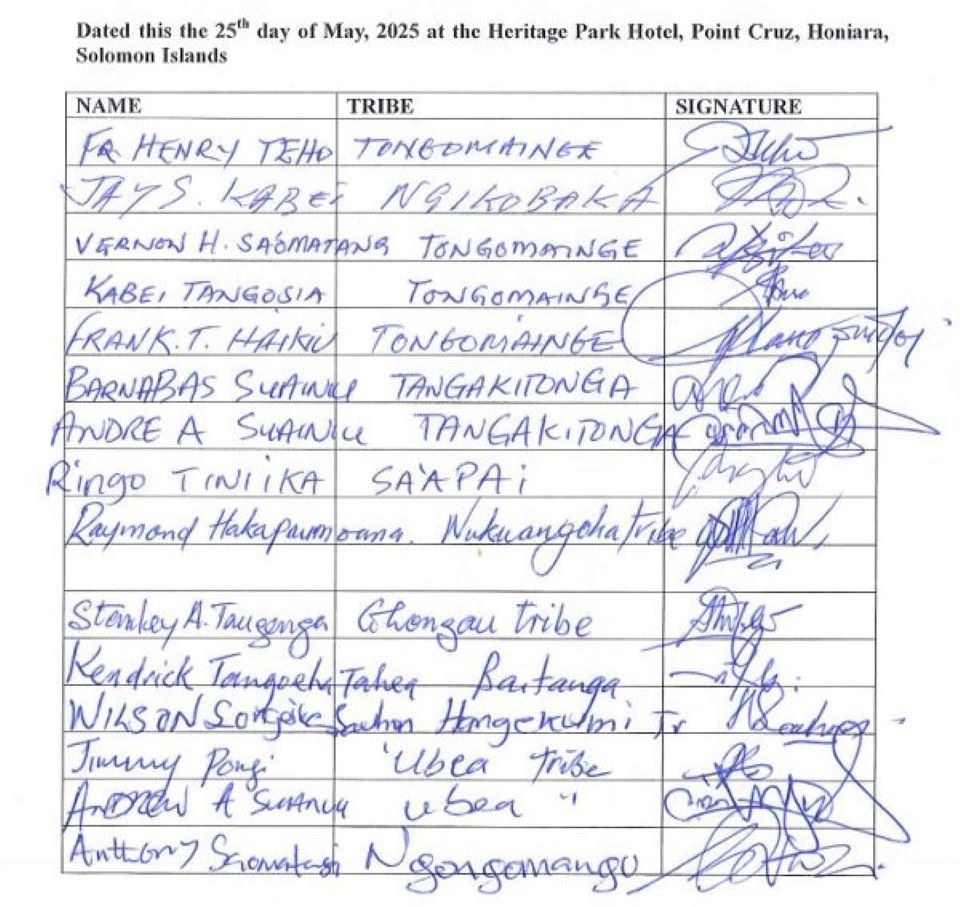 Dated this the 25th day of May, 2025 at the Heritage Park Hotel, Point Cruz, Honiara,
Solomon Islands
NAME TRIBE SIGNATURE
FR HENRY TEHO TONGOMAINGE
JAY S. KABEi NGIKOBAKA
VERNON H. SAOMATANG TONGOMAINGE
KABEI TANGOSIA TONGOMAINGE
FRANK.T. HAIKIU TONGOMAINGE
BARNABAS SUAINIU TANGAKITONGA
ANDRE A SUAINIU TANGAKITONGA
Ringo TINIIKA SA'APAi
Raymond Nukuangeha tribe
Stanley A. Taugenga Ghongau tribe
Kendrick Tangoeha Tahea Baitanga
WILSON Hangekumi Tr
Jimmy Pongi 'Ubea tribe
ANDREW A ubea "
Anthony Saomatangi Ngongomangu